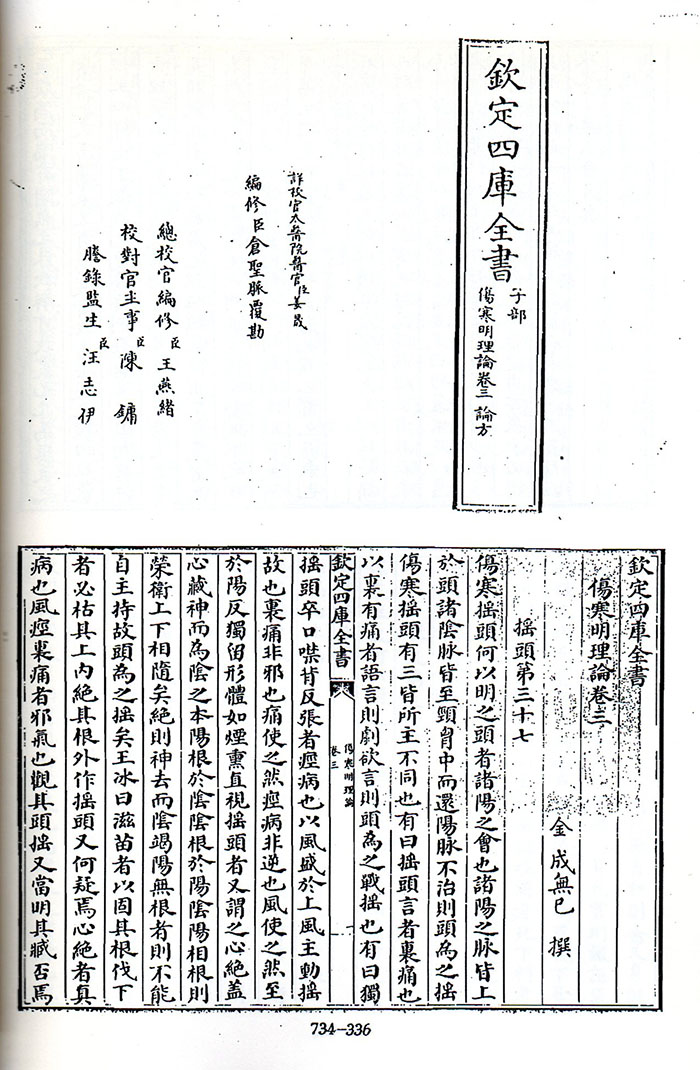 欽定四庫全書
子部
傷寒明理論卷三 論方
詳校官太醫院醫官臣姜晟
編修臣倉聖脈覆勘
總校官編修臣王燕緒
校對官主事臣陳鏞
謄錄監生臣汪志伊
欽定四庫全書
傷寒明理論卷三
金 成無已 撰
揺頭第三十七
傷寒揺頭何以明之頭者諸陽之會也諸陽之脈皆上
於頭諸陰脈皆至頸胷中而還陽脈不治則頭為之揺
傷寒揺頭有三皆所主不同也有曰揺頭言者裏痛也
以裏有痛者語言則劇欲言則頭為之戰揺也有曰獨
欽定四庫全書
傷寒明理論
卷三
一
揺頭卒口噤背反張者痙病也以風盛於上風主動揺
故也裏痛非邪也痛使之然痙病非逆也風使之然至
於陽反獨留形體如煙熏直視揺頭者又謂之心絶蓋
心藏神而為陰之本陽根於陰陰根於陽陰陽相根則
榮衛上下相隨矣絶則神去而陰竭陽無根者則不能
自主持故頭為之揺矣王冰曰滋苗者以固其根伐下
者必枯其上内絶其根外作揺頭又何疑焉心絶者真
病也風痙裏痛者邪氣也觀其頭揺又當明其臧否焉
734-336